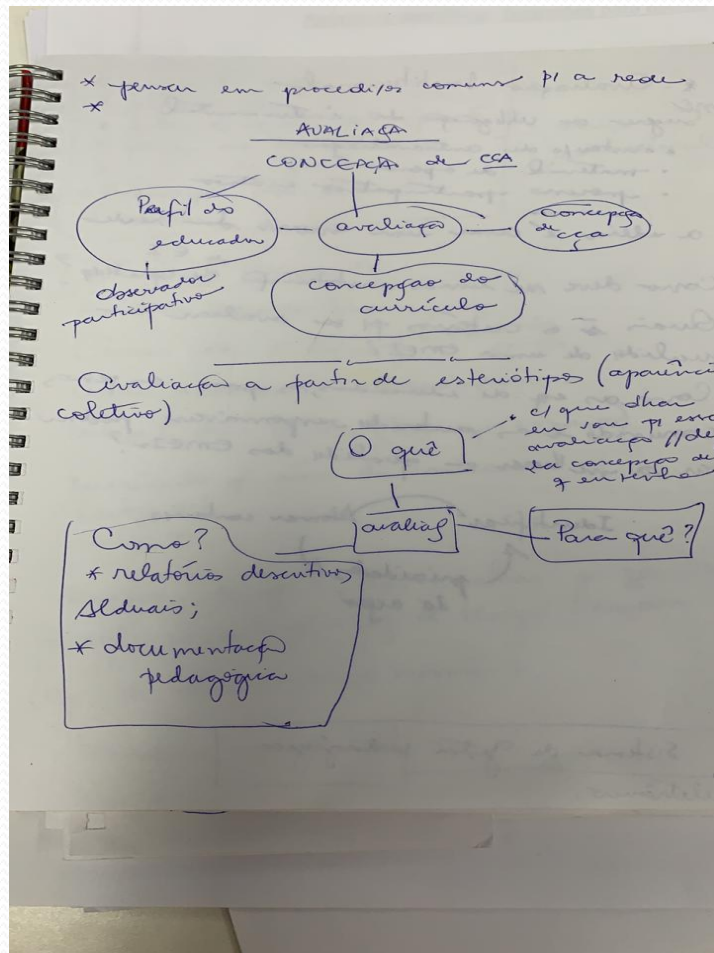 * pensar em procedi/os comuns p/ a rede
*
AVALIAÇÃ
CONCEPÇÃ de CÇA
Perfil do
educador
avaliação
concepção
de cça
observador
participativo
concepção do
currículo
Avaliação a partir de esteriótipos (aparênci
coletivo)
• c/ que olhar
eu vou p/ essa
avaliação //de
da concepção de
q eu tenho
O quê
avaliaç
Para quê?
Como?
* relatórios descritivos
* documentação
pedagógica